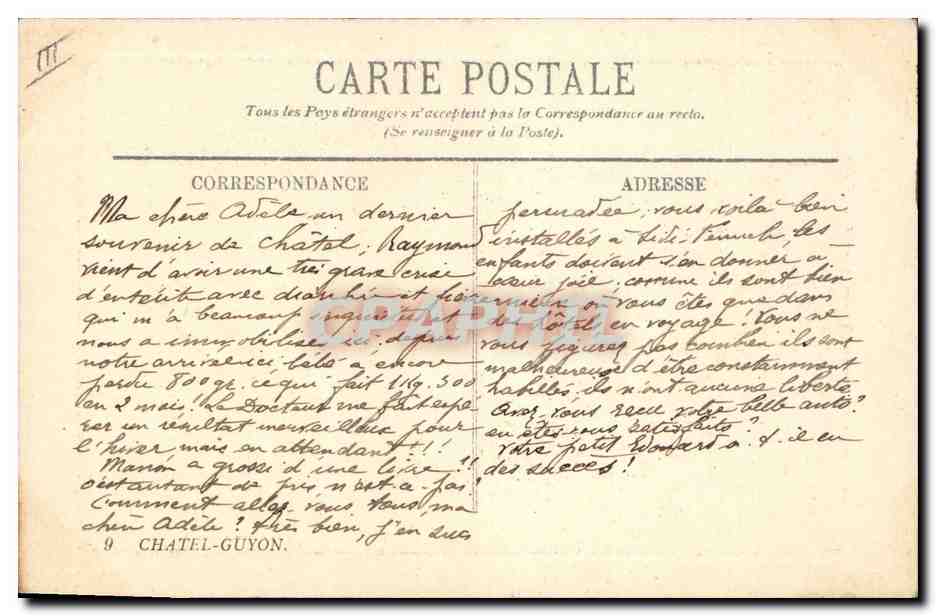 III
CARTE POSTALE
Tous les Pays étrangers n'acceptent pas la Correspondance au recto.
(Se renseigner à la Poste).
CORRESPONDANCE
Ma chère Adèle un dernier
souvenir de Châtel; Raymond
vient d'avoir une très grave crise
d'entérite avec diarrhée et
qui m'a beaucoup inquiétée et
nous a immobilisés ici, depuis
notre arrivée ici, bébé a encore
perdu 800 gr. ce qui fait 1 Kg. 300
en 2 mois! Le Docteur me fait espé
rer un résultat merveilleux pour
l'hiver mais en attendant!!!
Manon a grossi d'une livre!!
c'est autant de pris n'est-ce-pas!
Comment allez vous tous ma
chère Adèle? très bien, j'en suis
9 CHATEL-GUYON.
ADRESSE
persuadée, vous voilà bien
installés à Sidi-Ferruch, les
enfants doivent s'en donner à
cœur joie, comme ils sont bien
mieux où vous êtes que dans
des hôtels, en voyage! Vous ne
vous figurez pas combien ils sont
malheureux d'être constamment
habillés, ils n'ont aucune liberté
Avez-vous reçu votre belle auto?
en êtes-vous satisfaits?
Votre petit Edouard a-t-il eu
des succès!
CPAPHIL